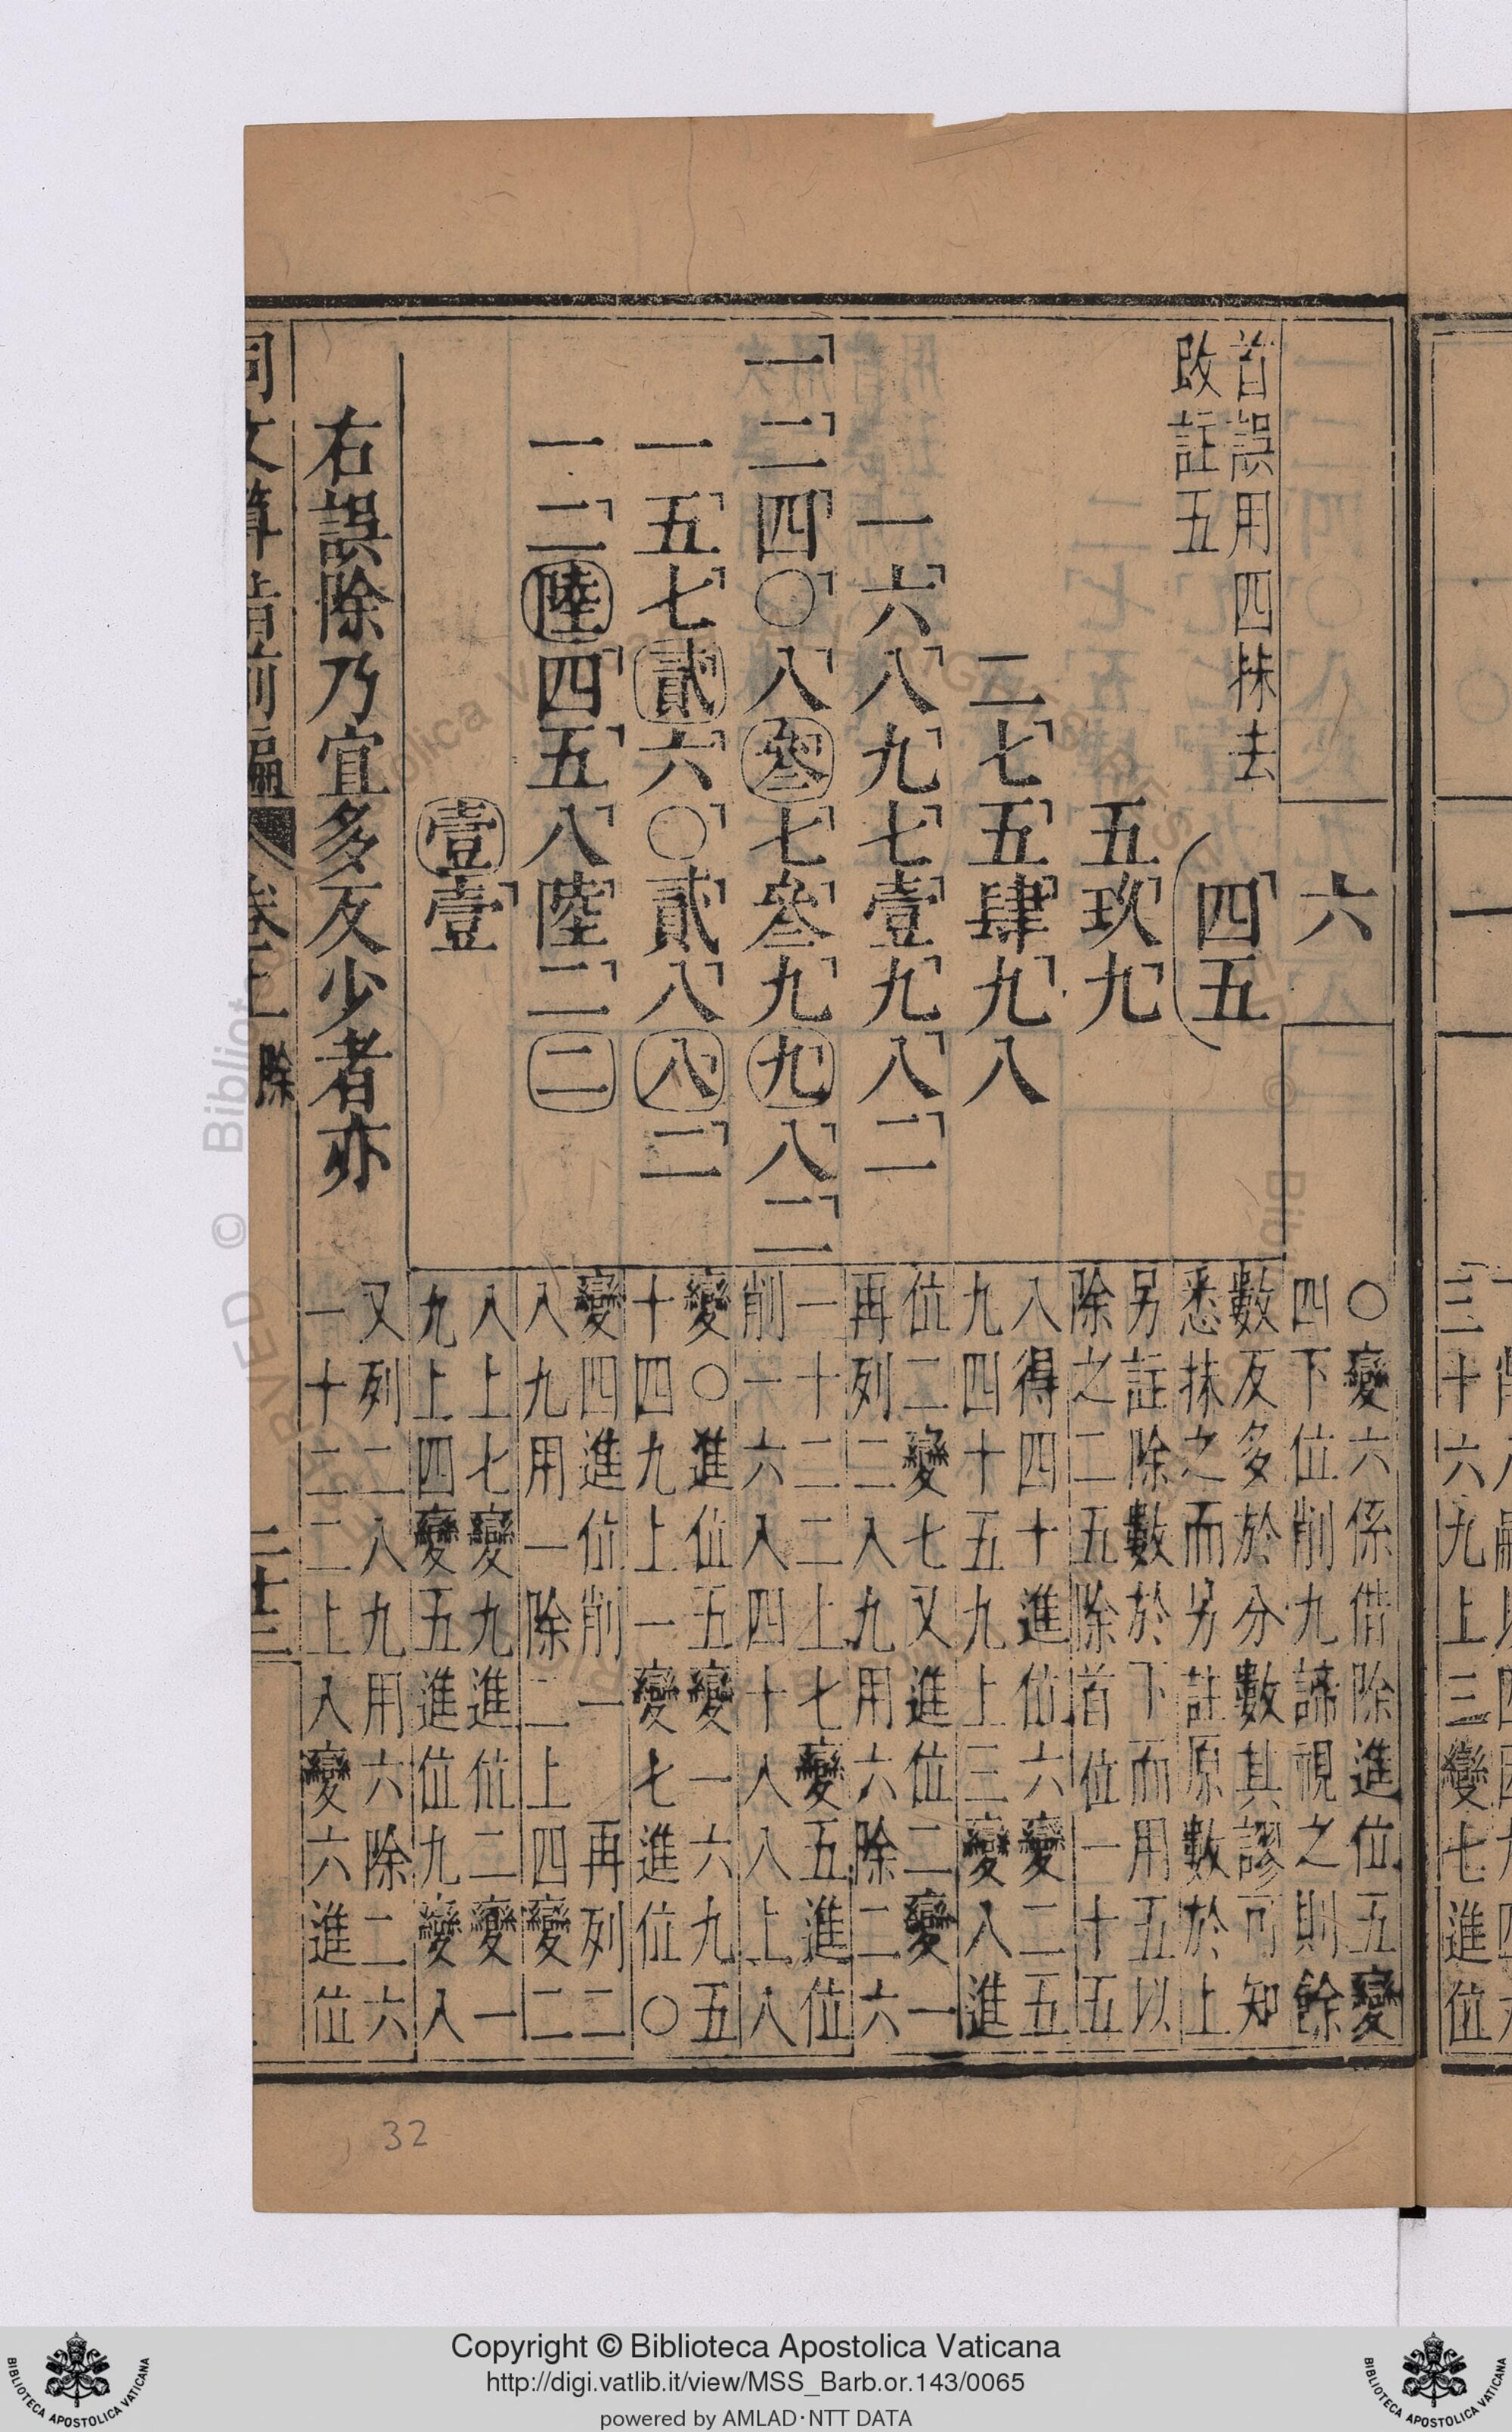 六
首誤用四抹去
改註五
四五
五玖九
二七五肆九八
一六八九七壹九八二
一二四〇八叄七叄九九八二
一五七貳六〇貳八八二
一二陸四五八陸二二
壹壹
〇變六係借除進位五變
四下位削九諦視之則餘
數反多於分數其謬可知
悉抹之而另註原數於上
另註除數於下而用五以
除之二五除首位一十五
八得四十進位六變二五
九四十五九上三變八進
位二變七又進位二變一
再列二八九用六除二六
一十二二上七變五進位
削一六八四十八八上八
變〇進位五變一六九五
十四九上一變七進位〇
變四進位削一再列二
八九用一除二上四變二
八上七變九進位二變一
九上四變五進位九變八
右誤除乃宜多反少者亦
又列二八九用六除二六
一十二二上八變六進位
同文算指前編 卷二 除 二十三
一
三十六九上三變七進位
32
Copyright © Biblioteca Apostolica Vaticana
http://digi.vatlib.it/view/MSS_Barb.or.143/0065
powered by AMLAD·NTT DATA
BIBLIOTECA APOSTOLICA VATICANA
BIBLIOTECA APOSTOLICA VATICANA